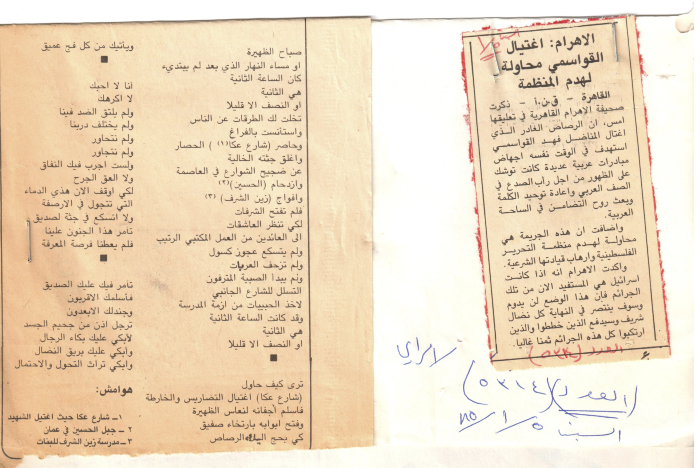 الاهرام: اغتيال
القواسمي محاولة
لهدم المنظمة
القاهرة - ق.ن.ا - ذكرت
صحيفة الاهرام القاهرية في تعليقها
امس، ان الرصاص الغادر الذي
اغتال المناضل فهد القواسمي
استهدف في الوقت نفسه اجهاض
مبادرات عربية عديدة كانت توشك
على الظهور من اجل رأب الصدع في
الصف العربي واعادة توحيد الكلمة
وبعث روح التضامن في الساحة
العربية.
واضافت ان هذه الجريمة هي
محاولة لهدم منظمة التحرير
الفلسطينية وارهاب قيادتها الشرعية.
واكدت الاهرام انه اذا كانت
اسرائيل هي المستفيد الان من تلك
الجرائم فأن هذا الوضع لن يدوم
وسوف ينتصر في النهاية كل نضال
شريف وسيدفع الذين خططوا والذين
ارتكبوا كل هذه الجرائم ثمنا غاليا.
الراي
العدد (٥٣١٤)
السبت ٥/١/٨٥
صباح الظهيرة
او مساء النهار الذي بعد لم يبتديء
كان الساعة الثانية
هي الثانية
او النصف الا قليلا
تخلت لك الطرقات عن الناس
واستانست بالفراغ
وحاصر (شارع عكا(١) ) الحصار
واغلق جثته الخالية
عن ضجيج الشوارع في العاصمة
وازدحام (الحسين)(٢)
وافواج (زين الشرف) (٣)
فلم تفتح الشرفات
لكي تنظر العاشقات
الى العائدين من العمل المكتبي الرتيب
ولم يتسكع عجوز كسول
ولم تزحف العربات
ولم يبدا الصبية المترفون
التسلل للشارع الجانبي
لاخذ الحبيبات من ازمة المدرسة
وقد كانت الساعة الثانية
هي الثانية
او النصف الا قليلا
ترى كيف حاول
(شارع عكا) اغتيال التضاريس والخارطة
فاسلم اجفانه لنعاس الظهيرة
وفتح ابوابه بارتخاء صفيق
كي يجح اليك الرصاص
ويأتيك من كل فج عميق
انا لا احبك
لا اكرهك
ولم يلتق الضد فينا
ولم يختلف دربنا
ولم نتحاور
ولم نتجاور
ولست اجرب فيك النفاق
ولا العق الجرح
لكي اوقف الان هذي الدماء
التي تتجول في الارصفة
ولا اتسكع في جثة لصديق
تامر هذا الجنون علينا
فلم يعطنا فرصة المعرفة
تامر فيك عليك الصديق
فأسلمك الاقربون
وجندلك الابعدون
ترجل اذن من جحيم الجسد
لأبكي عليك بكاء الرجال
وأبكي عليك بريق النضال
وابكي تراث التحول والاحتمال
هوامش:
١ - شارع عكا حيث اغتيل الشهيد
٢ - جبل الحسين في عمان
٣ - مدرسة زين الشرف للبنات